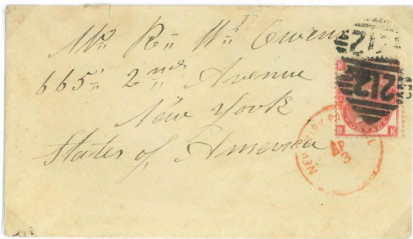 Mr. R. Wm Owens
665 2nd Avenue
New York
States of America
212
212
NEW YORK PAID ALL
AP
3
B K